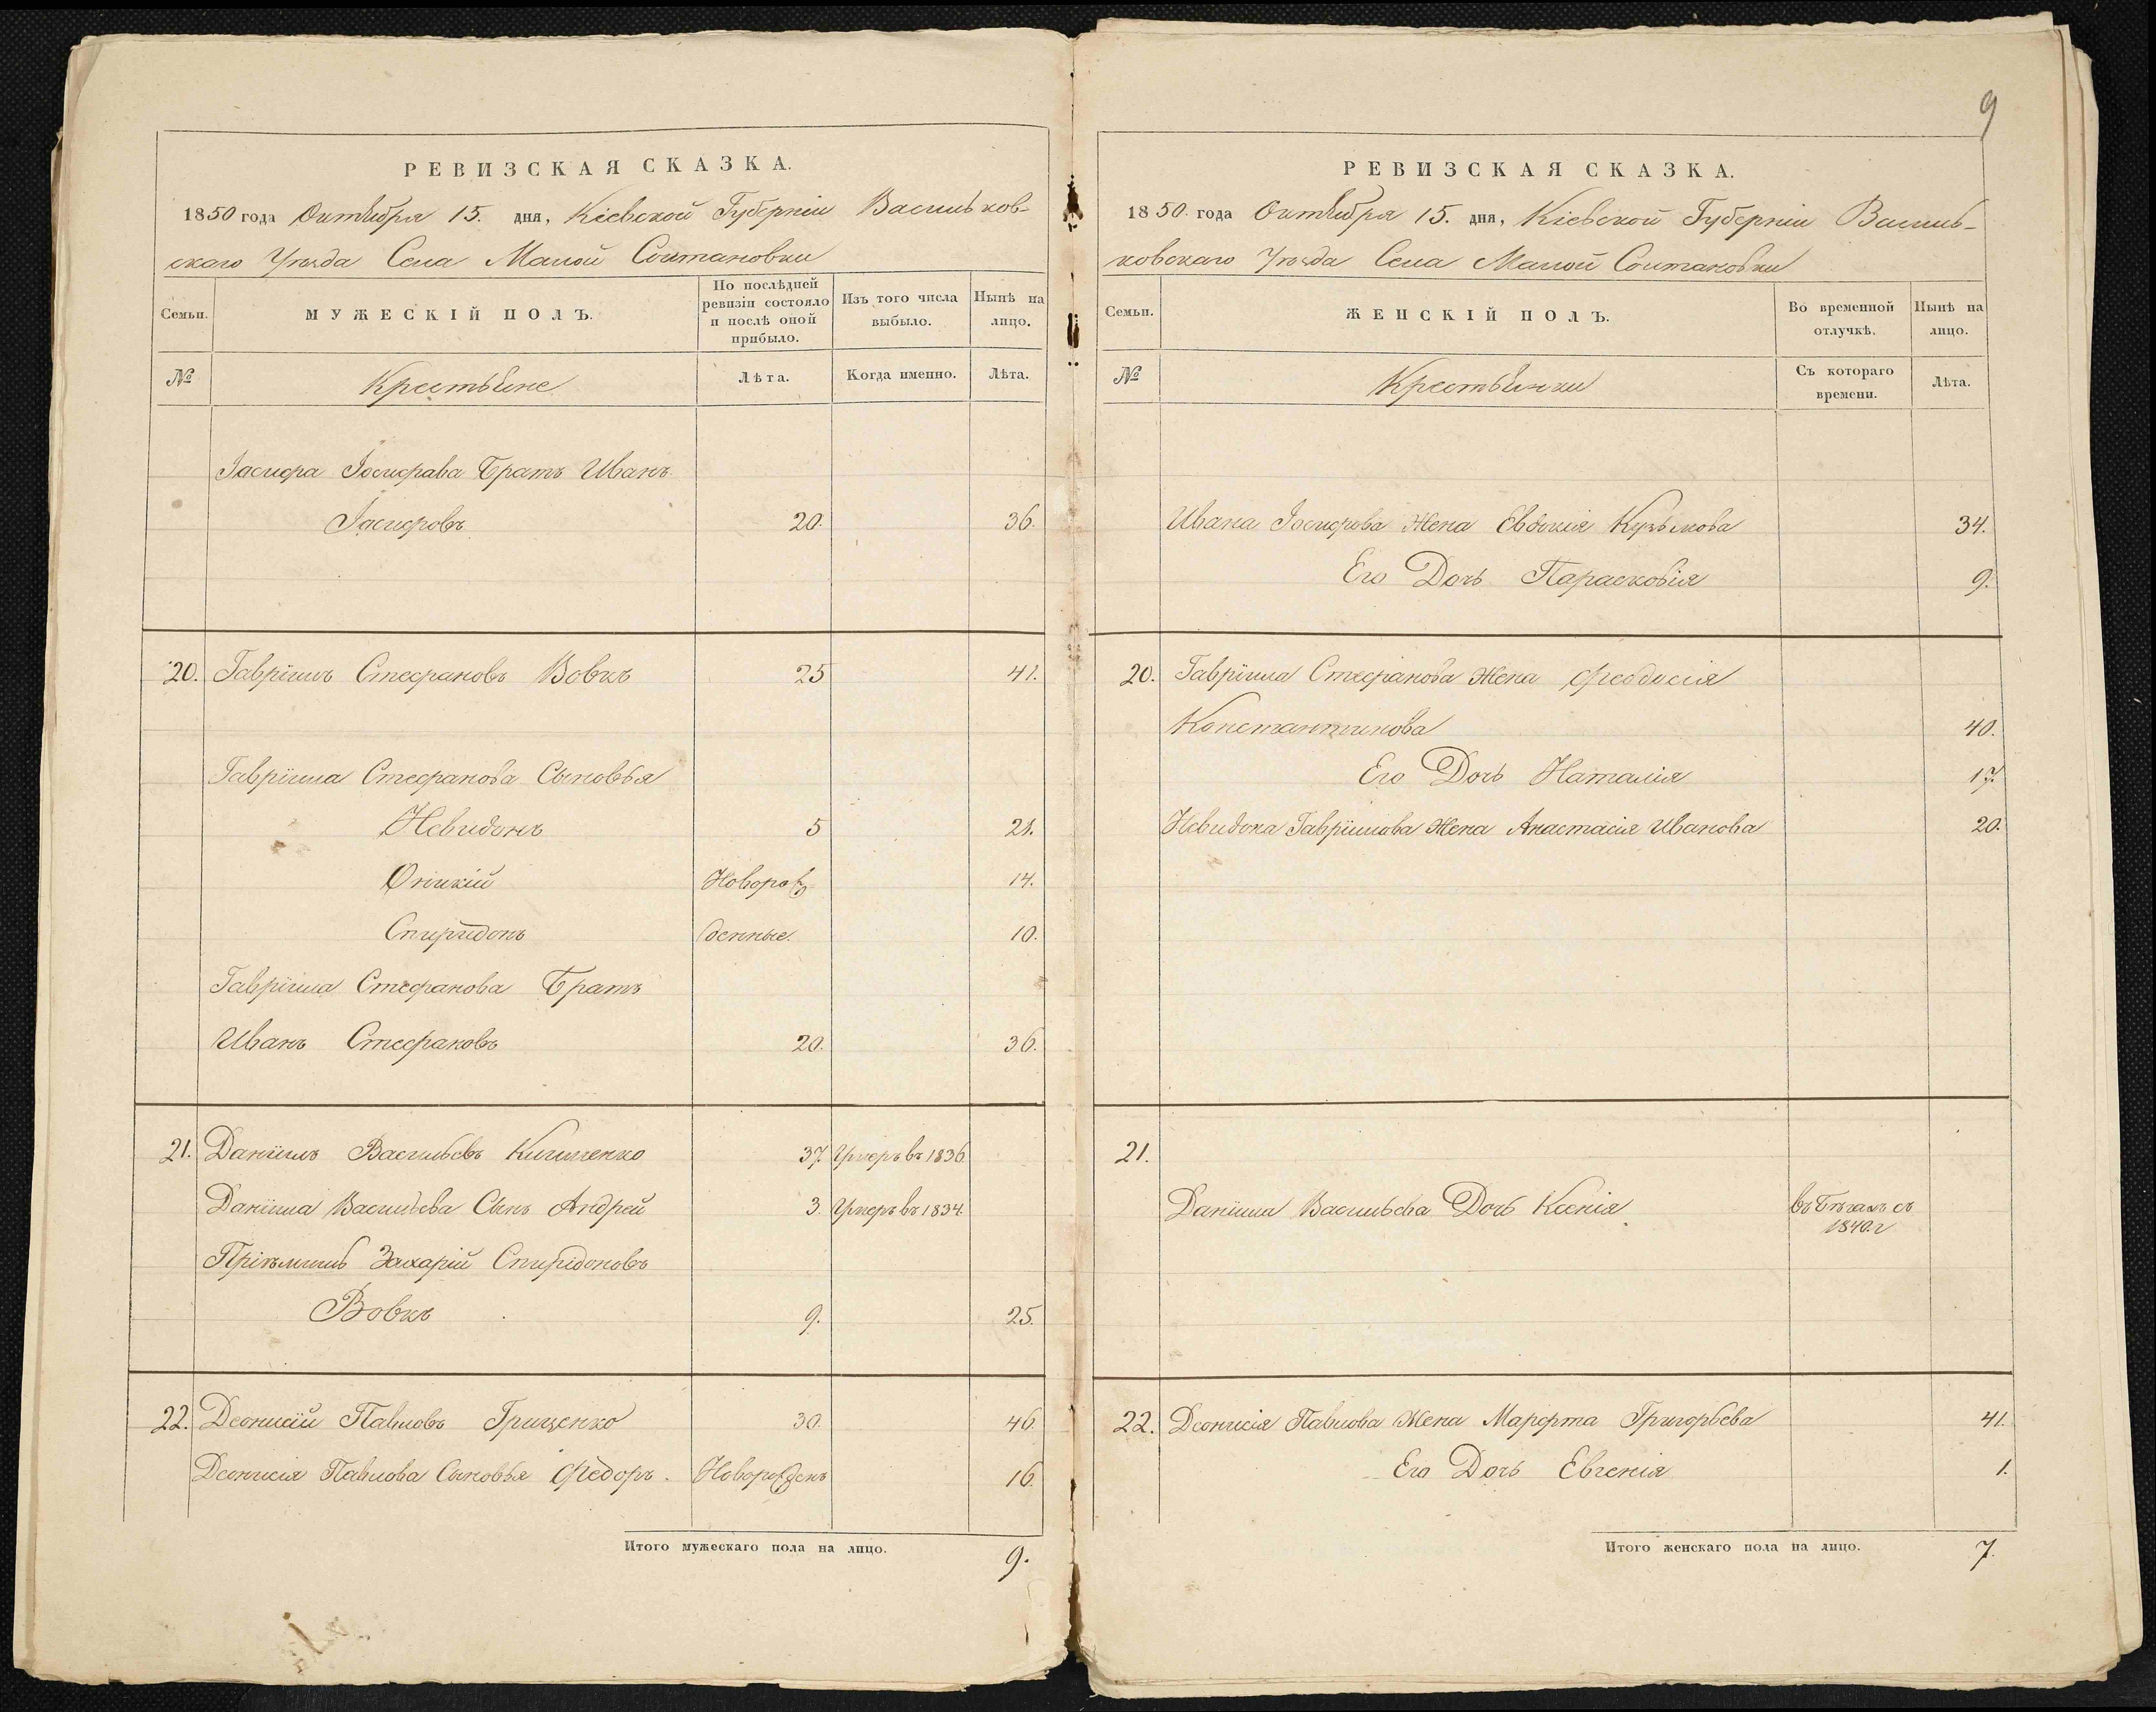 9
РЕВИЗСКАЯ СКАЗКА.
1850 года Октября 15. дня, Кіевской Губерніи Васильков-
скаго Уѣзда Села Малой Солтановки
Семьи.
МУЖЕСКІЙ ПОЛЪ.
По послѣдней ревизіи состояло и послѣ оной прибыло.
Изъ того числа выбыло.
Нынѣ на лицо.
№
Крестьяне
Лѣта.
Когда именно.
Лѣта.
Іосифа Іосифава Братъ Иванъ
Іосифовъ 20. 36.
20. Гавріилъ Стефановъ Вовкъ 25 41.
Гавріила Стефанова Сыновья
5 21.
14.
Спиридонъ денные. 10.
Гавріила Стефанова Братъ
Иванъ Стефановъ 20. 36.
21. Даніилъ Васильевъ 37. Умеръ въ 1836.
Даніила Васильева Сынъ Андрей 3. Умеръ въ 1834.
Пріемышъ Захарій Спиридоновъ
Вовкъ 9. 25.
22. Деонисій Павловъ Грищенко 30. 46.
Деонисія Павлова Сыновья Федоръ. Новорожденъ 16.
Итого мужескаго пола на лицо. 9.
РЕВИЗСКАЯ СКАЗКА.
1850. года Октября 15. дня, Кіевской Губерніи Василь-
ковскаго Уѣзда Села Малой Солтановки
Семьи.
ЖЕНСКІЙ ПОЛЪ.
Во временной отлучкѣ.
Нынѣ на лицо.
№
Крестьянки
Съ котораго времени.
Лѣта.
Ивана Іосифова Жена Евдокія Кузьмова 34.
Его Дочь Парасковія 9.
20. Гавріила Стефанова Жена Феодосія
Константинова 40.
Его Дочь Наталія 17.
Гавріилова Жена Анастасія Иванова 20.
21.
Даніила Васильева Дочь Ксенія въ Бѣгахъ съ
1840.г
22. Деонисія Павлова Жена Марфта Григорьева 41.
Его Дочь Евгенія 1.
Итого женскаго пола на лицо. 7.